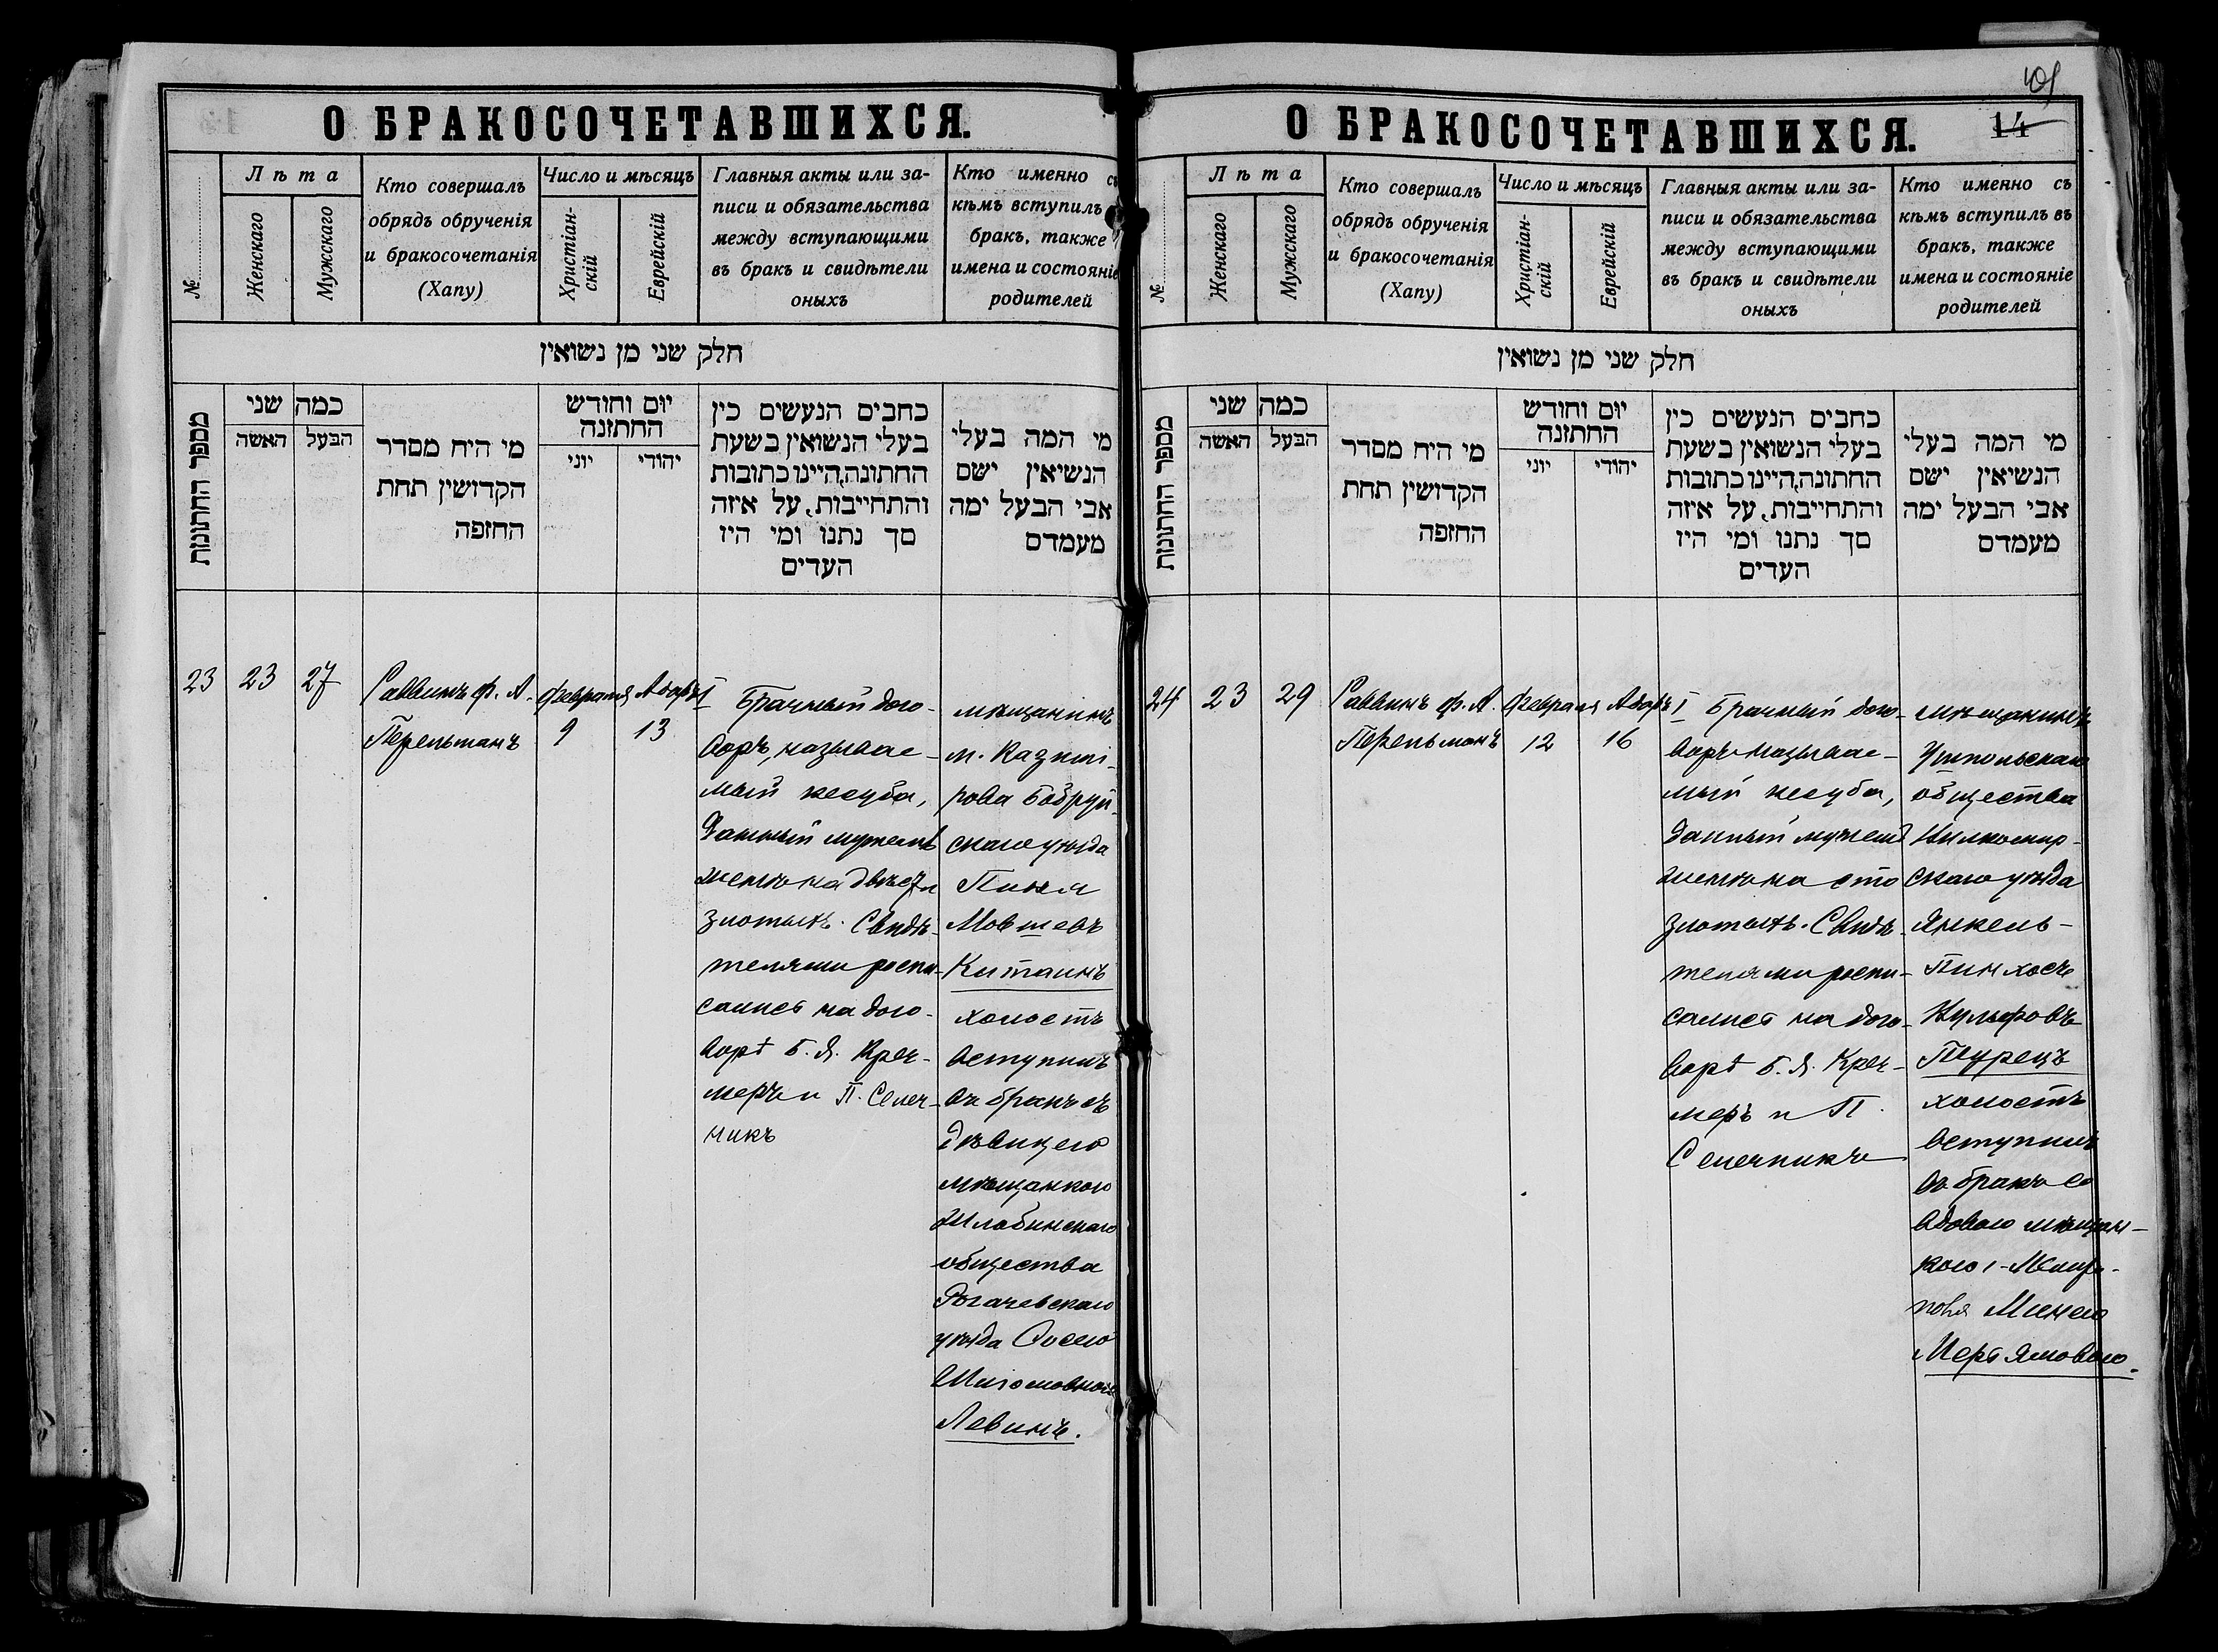 О БРАКОСОЧЕТАВШИХСЯ.
№
Лѣта
Женскаго
Мужскаго
Кто совершалъ
обрядъ обрученія
и бракосочетанія
(Хапу)
Число и мѣсяцъ
Христіан-
скій
Еврейскій
Главныя акты или за-
писи и обязательства
между вступающими
въ бракъ и свидѣтели
оныхъ
Кто именно съ
кѣмъ вступилъ
бракъ, также
имена и состояніе
родителей
חלק שני מן נשואין
מספר החתונות
כמה שני
האשה
הבעל
מי היח מסדר
הקדושין תחת
החזפה
יום וחודש
החתזנה
יוני
יהודי
כחבים הנעשים כין
בעלי הנשואין בשעת
החתונה,היינו כתובות
והתחייבות, על איזה
סך נתנו ומי היז
העדים
מי המה בעלי
הנשיאין ישם
אבי הבעל ימה
מעמדם
23
23
27
Раввинъ Ф. А.
Перельманъ
Февраля
9
Адаръ I
13
Брачный дого-
воръ, называе-
мый кесуба,
данный мужемъ
женѣ на двѣсти
злотыхъ. Свидѣ-
телями роспи-
сались на дого-
ворѣ Б. Я. Креч-
меръ и П. Сеген-
никъ
мѣщанинъ
м. Казими-
рова Бобруй-
скаго уѣзда
Пиня
Мовшевъ
Китаинъ
холостъ
вступилъ
въ бракъ съ
дѣвицею
мѣщанкою
Жлобинскаго
общества
Рогачевскаго
уѣзда Сосею
Шлiомовною
Левинъ.
О БРАКОСОЧЕТАВШИХСЯ.
14
№
Лѣта
Женскаго
Мужскаго
Кто совершалъ
обрядъ обрученія
и бракосочетанія
(Хапу)
Число и мѣсяцъ
Христіан-
скій
Еврейскій
Главныя акты или за-
писи и обязательства
между вступающими
въ бракъ и свидѣтели
оныхъ
Кто именно съ
кѣмъ вступилъ въ
бракъ, также
имена и состояніе
родителей
חלק שני מן נשואין
מספר החתונות
כמה שני
האשה
הבעל
מי היח מסדר
הקדושין תחת
החזפה
יום וחודש
החתזנה
יוני
יהודי
כחבים הנעשים כין
בעלי הנשואין בשעת
החתונה,היינו כתובות
והתחייבות, על איזה
סך נתנו ומי היז
העדים
מי המה בעלי
הנשיאין ישם
אבי הבעל ימה
מעמדם
24
23
29
Раввинъ Ф. А.
Перельманъ
Февраля
12
Адаръ I
16
Брачный дого-
воръ называе-
мый кесуба,
данный мужемъ
женѣ на сто
злотыхъ. Свидѣ-
телями роспи-
сались на дого-
ворѣ Б. Я. Креч-
меръ и П.
мѣщанинъ
Ушпольскаго
общества
Вилкомир-
скаго уѣзда
Янкель-
Пинхосъ
Вульфовъ
Турецъ
холостъ
вступилъ
въ бракъ со
вдовою мѣщан-
кою г. Мелито-
поля Минею